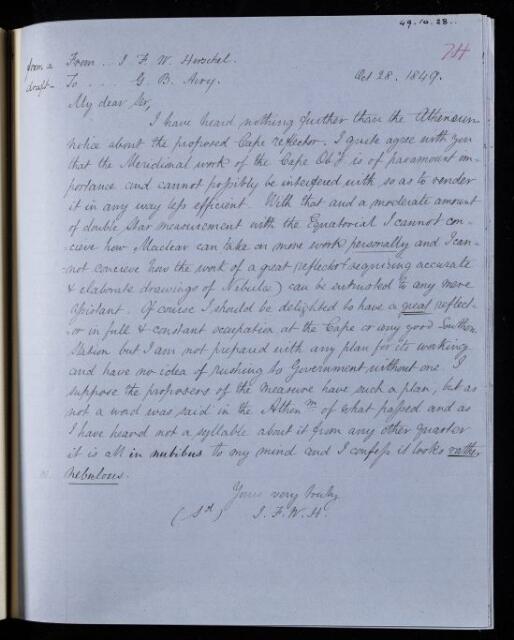 49.10.28.
74
from a
draft
From .. J. F. W. Herschel.
To .... G. B. Airy.
Oct 28. 1849.
My dear Sir,
I have heard nothing further than the Athenæum
notice about the proposed Cape reflector. I quite agree with you
that the Meridional work of the Cape Oby. is of paramount im-
portance and cannot possibly be interfered with so as to render
it in any way less efficient. With that and a moderate amount
of double star measurement with the Equatorial I cannot con-
cieve how Maclear can take on more work personally and I can-
not concieve how the work of a great reflector (requiring accurate
& elaborate drawings of Nebulæ) can be entrusted to any mere
Assistant. Of course I should be delighted to have a great reflect-
or in full & constant occupation at the Cape or any good Southern
Station but I am not prepared with any plan for its working
and have no idea of rushing to Government without one. I
suppose the proposers of the measure have such a plan, but as
not a word was said in the Athenm. of what passed and as
I have heard not a syllable about it from any other quarter
it is all in nubibus to my mind and I confess it looks rather
nebulous.
Yours very truly
(Sd) J. F. W. H.